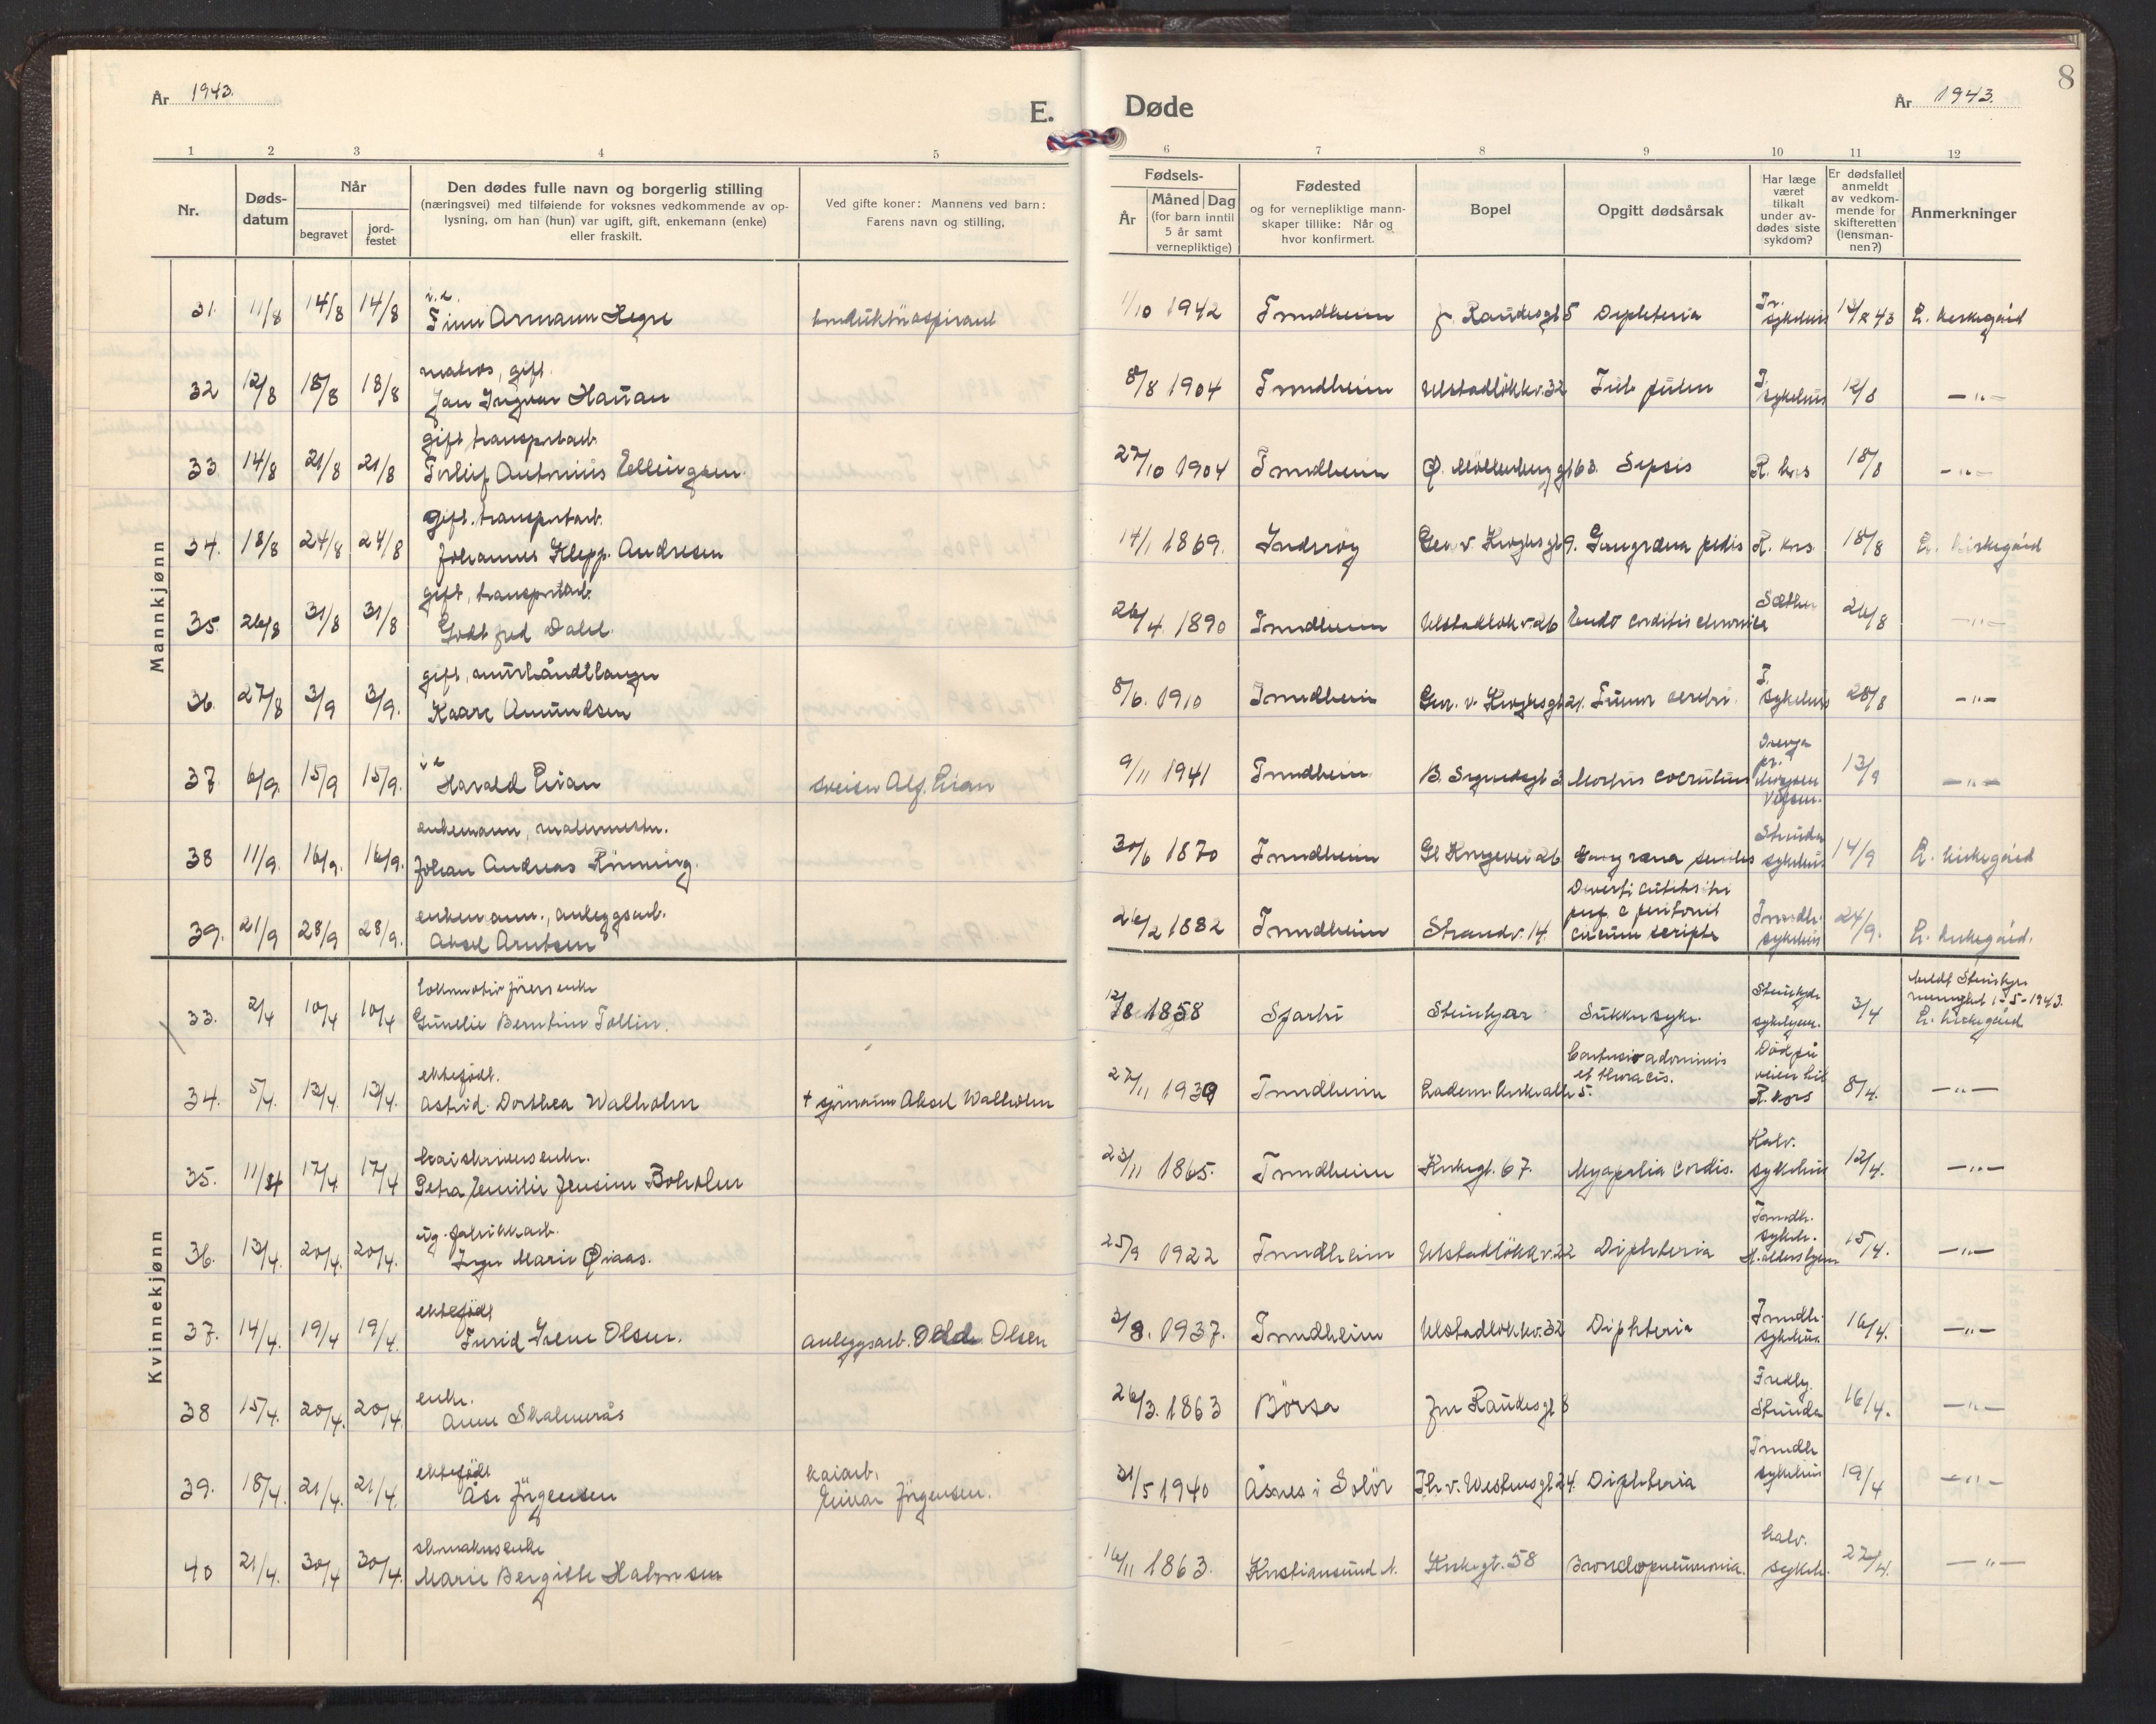 År 1943.
E.
Døde
År 1943.
8
1 2 3 4 5
6 7 8 9 10 11 12
Nr.
Døds-
datum
Når
begravet
jord-
festet
Den dødes fulle navn og borgerlig stilling
(næringsvei) med tilføiende for voksnes vedkommende av op-
lysning, om han (hun) var ugift, gift, enkemann (enke)
eller fraskilt.
Ved gifte koner: Mannens ved barn:
Farens navn og stilling.
Fødsels-
År
Måned Dag
(for barn inntil
5 år samt
vernepliktige)
Fødested
og for vernepliktige mann-
skaper tillike: Når og
hvor konfirmert.
Bopel
Opgitt dødsårsak
Har læge
været
tilkalt
under av-
dødes siste
sykdom?
Er dødsfallet
anmeldt
av vedkom-
mende for
skifteretten
(lensman-
nen?)
Anmerkninger
Mannkjønn
31. 11/8 14/8 14/8 Finn Armann Hegre 1/10 1942 Trondheim Diphteria Tr. sykehus L. kirkegård
32 12/8 18/8 18/8 matros, gift.
Jan Ingvar Hanan 8/8 1904 Trondheim Ulstadlökkv. 32 T. sykehus 12/8 - " -
33 14/8 21/8 21/8 gift transportarb.
Torleif Antonius Ellingsen. 27/10 1904 Trondheim Ø. Möllenberg gt 63. Sepsis R. kors 18/8 - " -
34. 18/8 24/8 24/8 gift. transportarb.
Johannes Klepp. Andresen 14/1 1869. Inderöy Gen. v. Kroghs gt 9. Gangræna pedis R. kors 18/8 L. kirkegård
35. 26/8 31/8 31/8 gift, transportarb.
Gottfred Dahl. 26/4. 1890 Trondheim Ulstadlökv. 26 Endo corditis chronica Sæther 26/8 - " -
36. 27/8 3/9 3/9. gift, murhåndtlanger
Kaare Amundsen 8/6. 1910 Trondheim Gen. v. Kroghsgt 21. Tumor cerebri. T. sykehus 28/8 - " -
37 6/9. 15/9 15/9. Harald Lian sveiser Alf. Lian 9/11 1941 Trondheim Morbus coerulens 13/9 - " -
38 11/9. 16/9. 16/9. enkemann, malermester.
Johan Andreas Rönning. 30/6 1870 Trondheim Gl Kongevei 26 Gangræna senilis Strinda sykehus 14/9 L. kirkegård
39. 21/9 28/9 28/9. enkemann., anleggsarb.
Aksel Arntsen 26/2 1882 Trondheim Strandv. 14. perf. c peritonit
circumscripta Trondh. sykehus 24/9. L. kirkegård.
Kvinnekjønn
33. 2/4 10/4 10/4 lokomotivförers enke
Gunelie Berntine Tollin. 12/8 1858 Sparbu Steinkjær Sukkersyke. Steinkjer sykehjem. 3/4 meldt Steinkjer
menighet 1-5-1943.
L. kirkegård
34. 5/4. 13/4. 13/4. ektefödt.
Astrid. Dorthea Walholm + sjömann Aksel Walholm 27/11 1939 Trondheim Lademkirkealle 5. Contusio adominis
et thoracis. Död på
veien til
R. kors 8/4. - " -
35. 11/4 17/4 17/4 kaiskrivers enke.
Petra Emilie Jensine Boholm 23/11 1865. Trondheim Kirkegt. 67. Myapolia cordis. Kalv. sykehus 12/4. - " -
36. 13/4. 20/4. 20/4. ug. fabrikkarb.
Inger Marie Øiaas. 25/9 1922 Trondheim Ulstadlökkv. 22 Diphteria Trondh. sykeh. 15/4. - " -
37. 14/4. 19/4 19/4. ektefödt
Turid Irene Olsen. anleggsarb. Odd. Olsen 3/8. 1937. Trondheim Ulstadlökkv. 32 Diphteria Trondh. sykehus 16/4. - " -
38 15/4. 20/4. 20/4. enke.
Anne Skalmerås 26/3. 1863 Börsa Jon Raudes gt 8 Fredly
Strinda 16/4. - " -
39. 18/4. 21/4. 21/4. ektefödt
Åse Jörgensen kaiarb.
Einar Jörgensen. 31/5 1940 Åsnes i Solör Th. v. Westensgt 24. Diphteria Trondh sykehus 19/4 - " -
40 21/4. 30/4 30/4. skomakers enke
Marie Bergitte Halvorsen 16/11 1863. Kristiansund N. Kirkegt. 58 Bronchopneumonia. Kalv. sykeh. 27/4. - " -